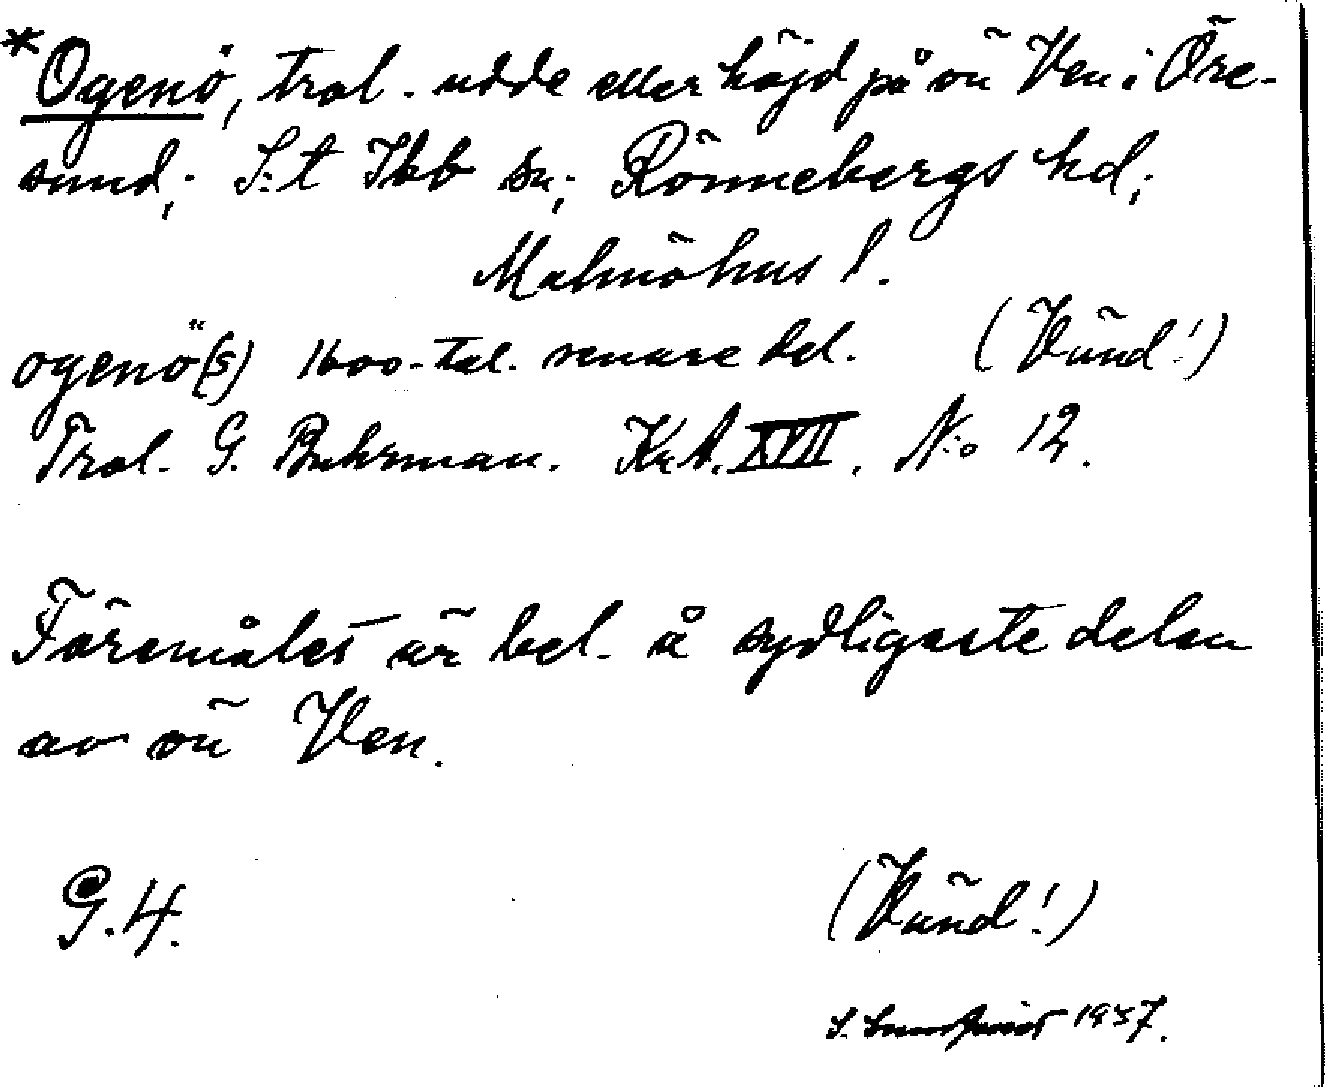 *Ogenö, trol. udde eller höjd på ön Ven i Öre-
sund; S:t Ibb sn; Rönnebergs hd;
Malmöhus l.
ogenö(s) 1600-tal. senare del. (Vänd!)
Trol. G. Buhrman. Kr.A. XVII. N:o 12.
Föremålet är bel. å sydligaste delen
av ön Ven.
G.4.
(Vänd!)
S. 1937.